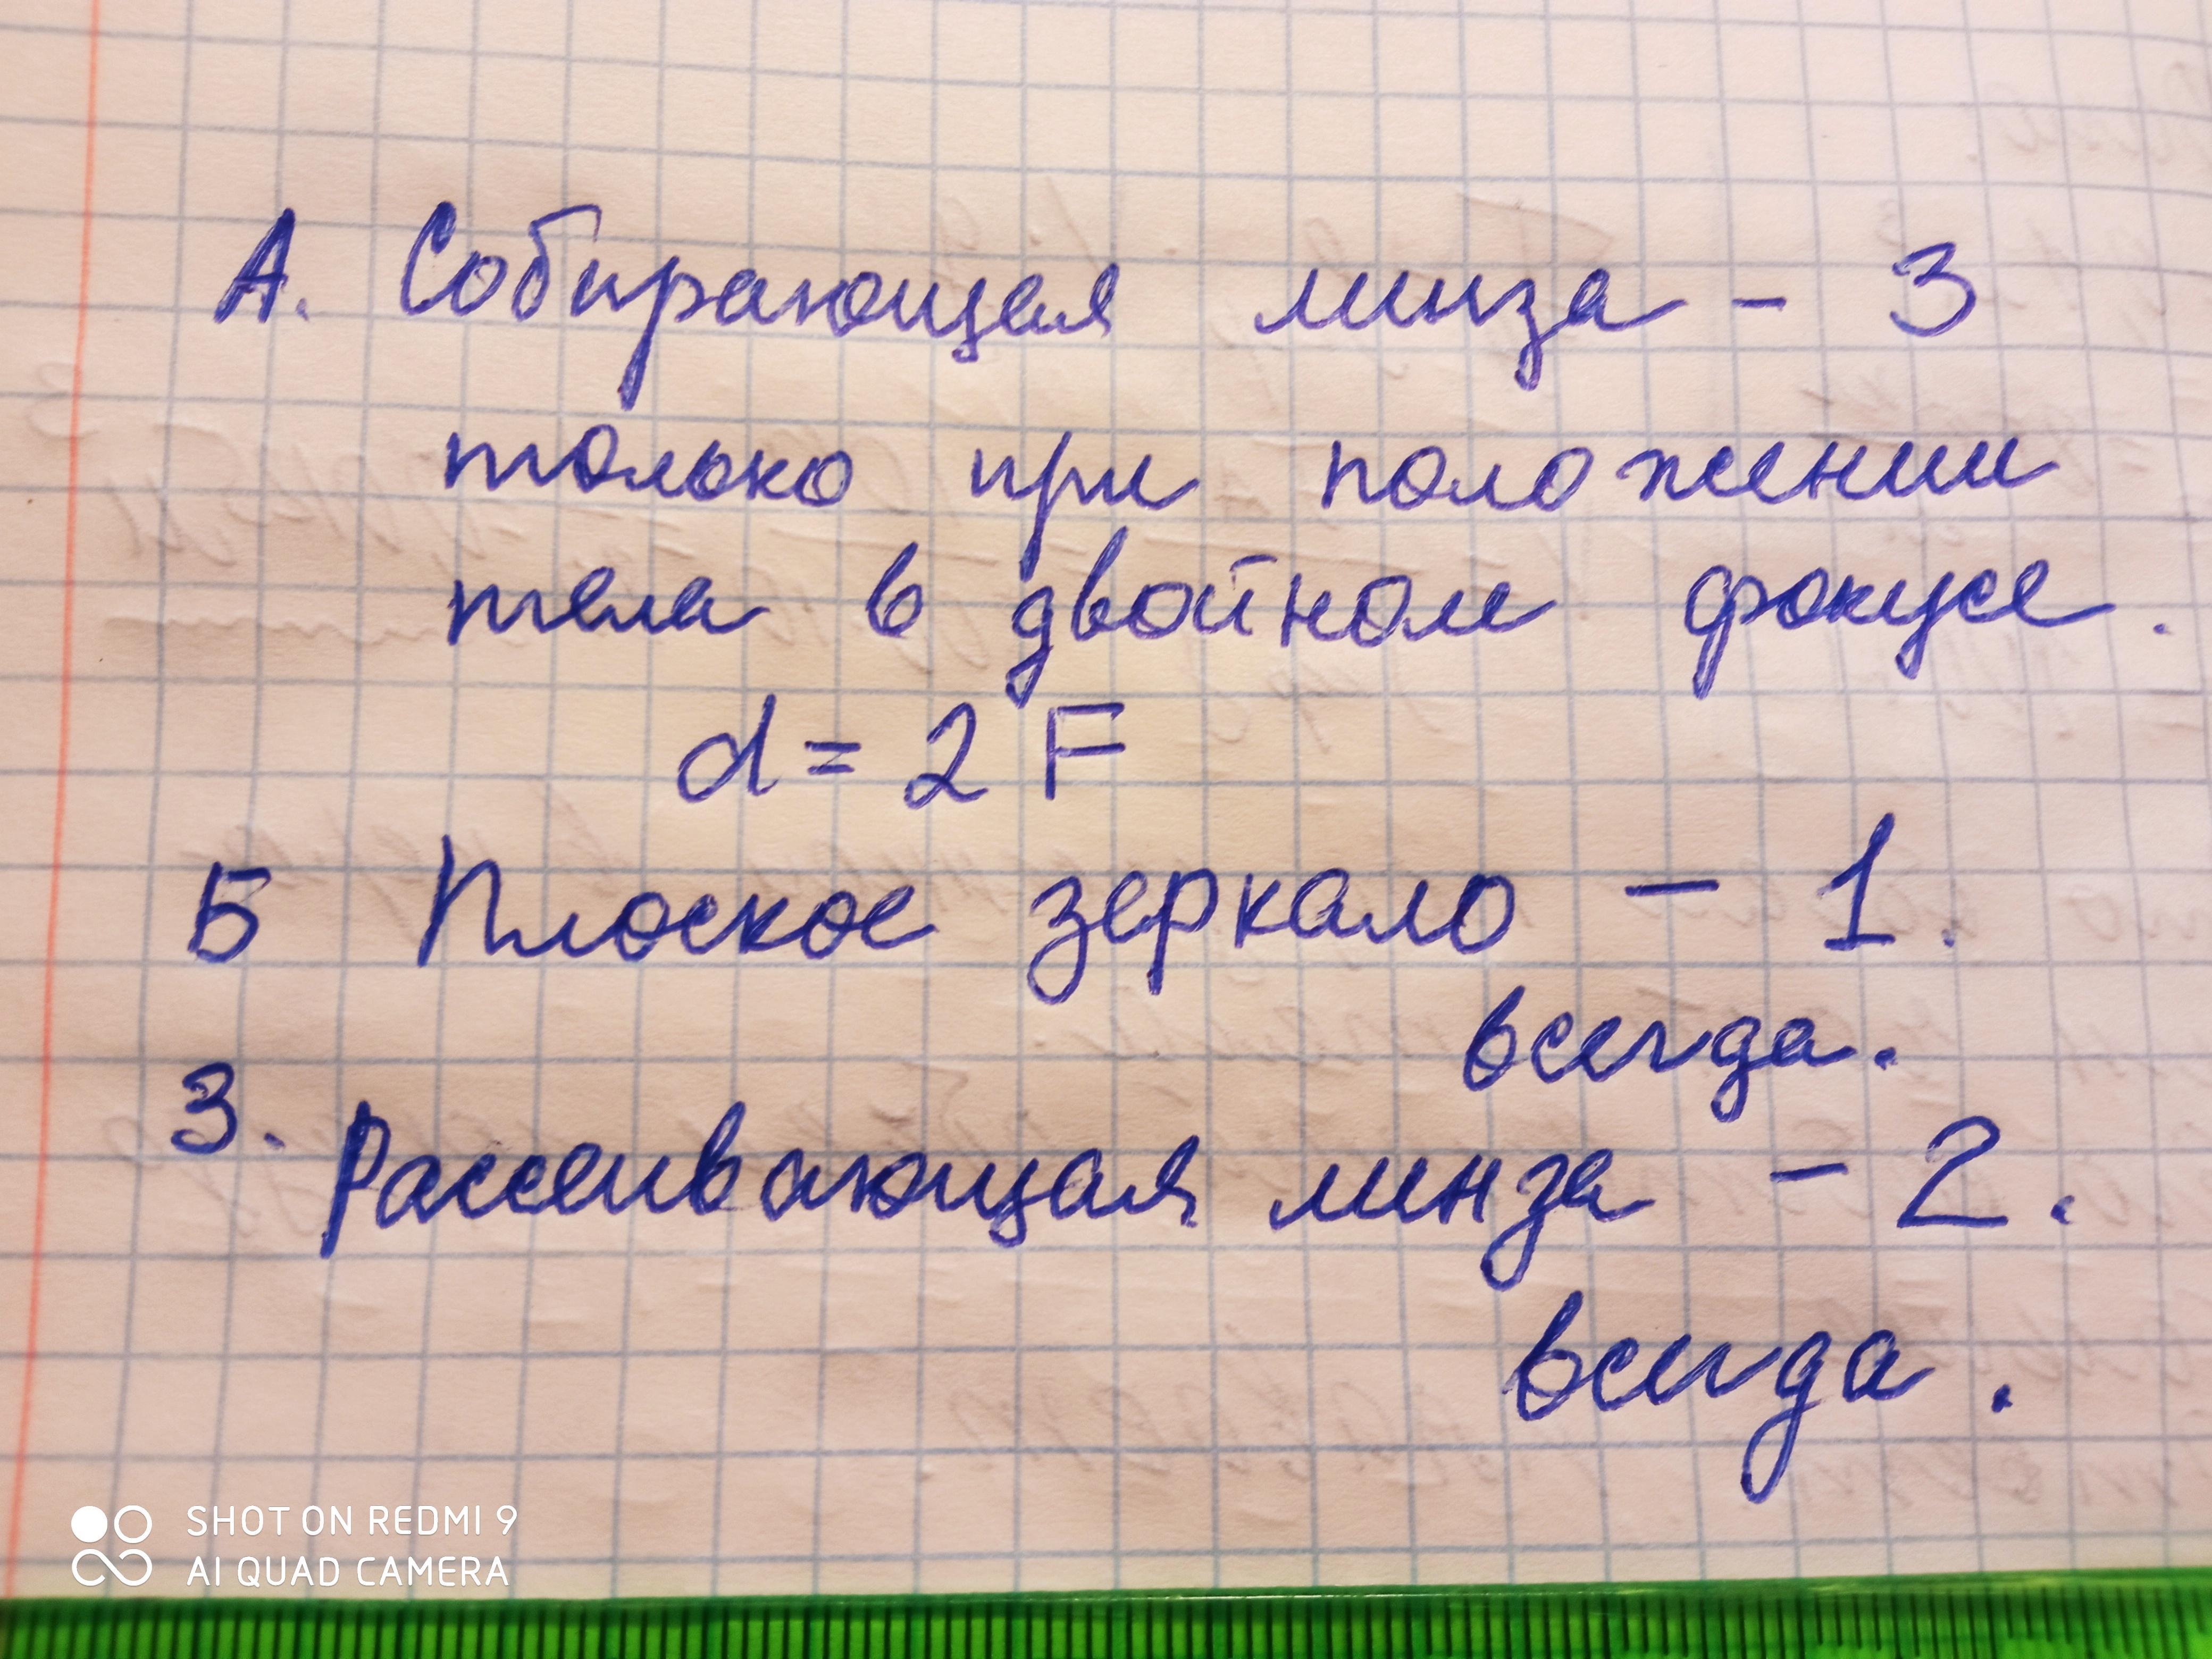 А. Собирающая линза - 3
только при положении
тела в двойном фокусе.
d = 2 F
Б Плоское зеркало - 1.
всегда.
3. Рассеивающая линза - 2.
всегда.
SHOT ON REDMI 9
AI QUAD CAMERA